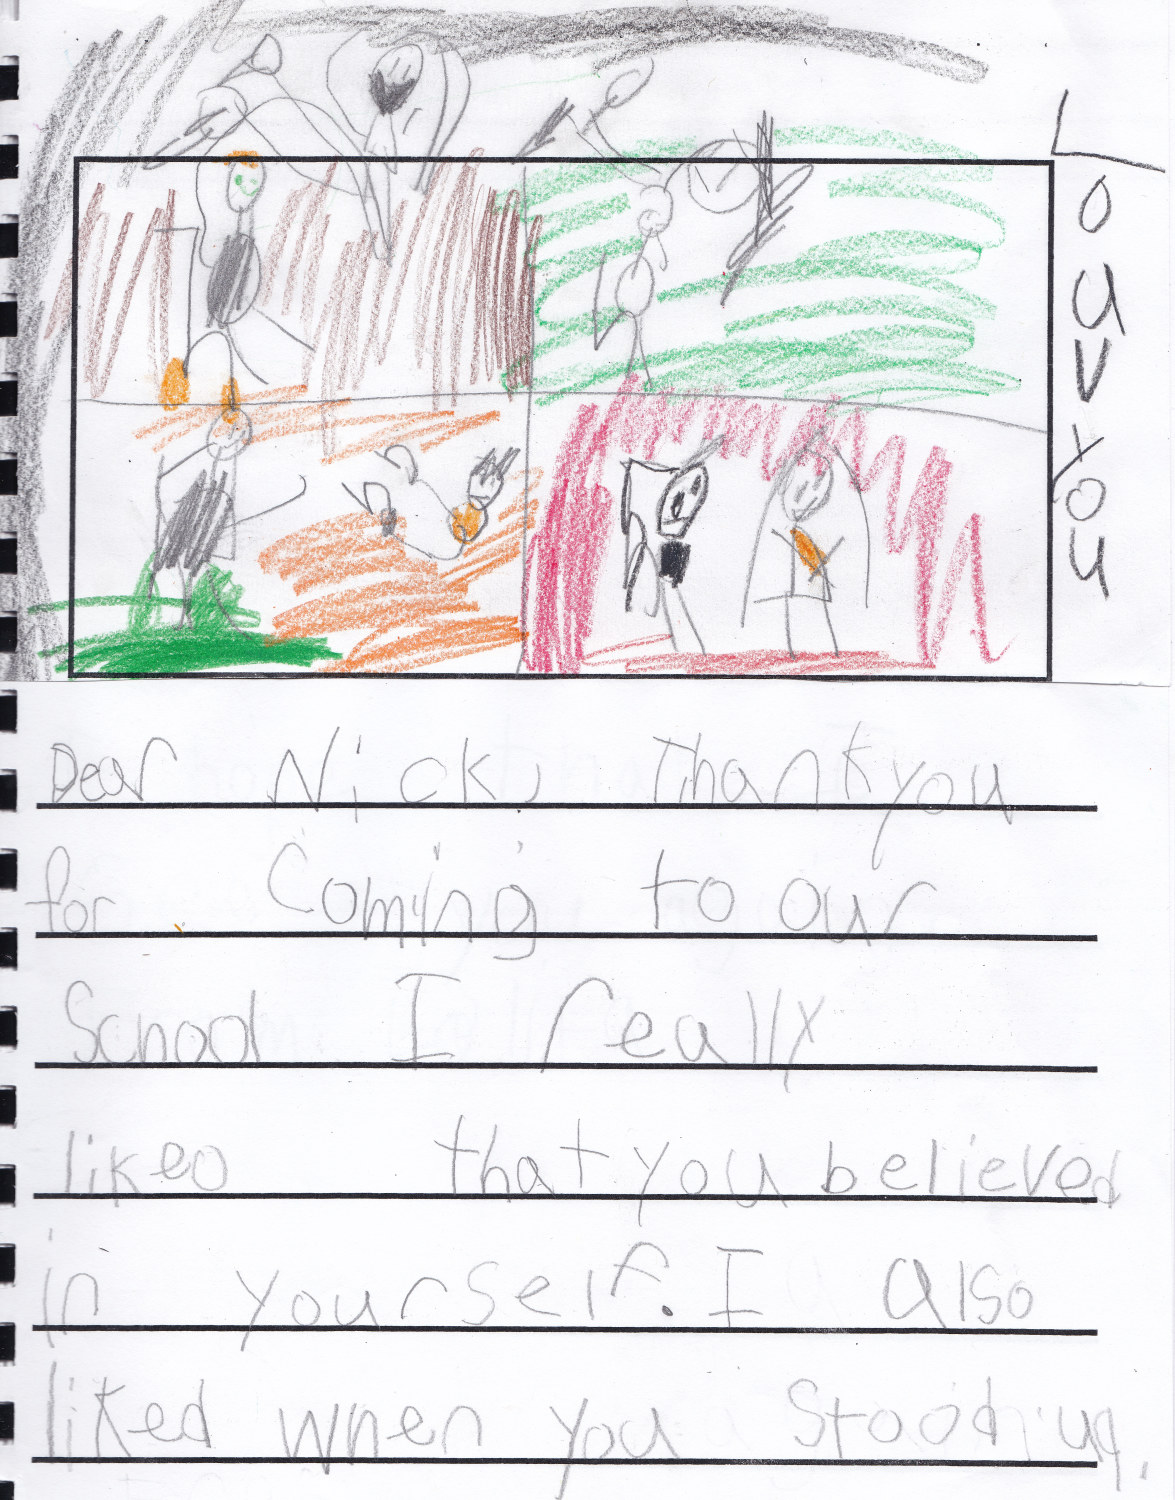 Louv you
Dear Nick, Thank you
for Coming to our
School I really
liked that you believed
in yourself. I also
liked when you Stood up.